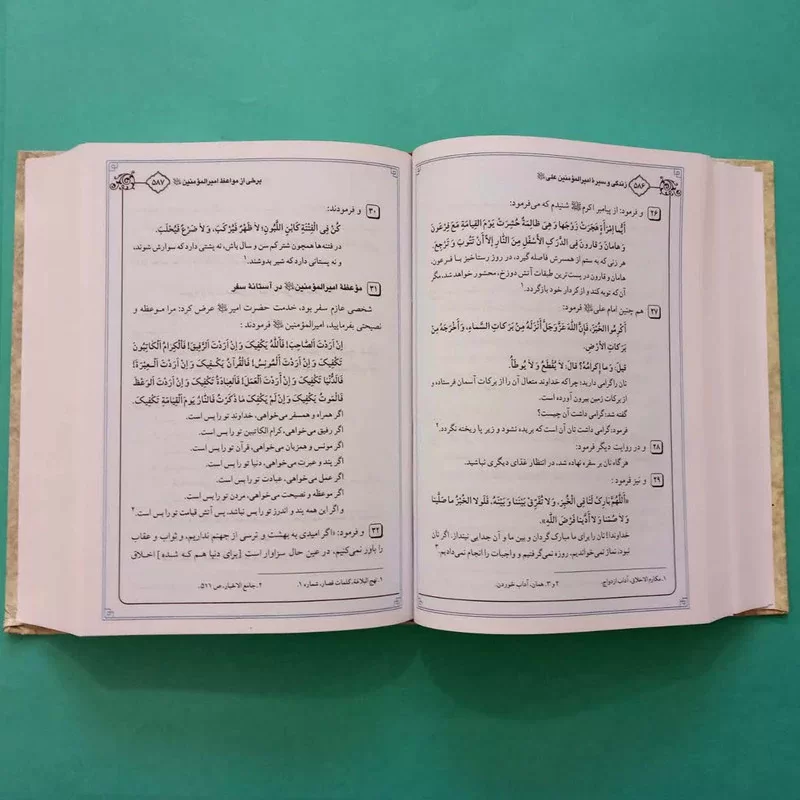 ۵۸۶ زندگی و سیرهٔ امیرالمؤمنین علی ﷺ
۲۶ و فرمود: از پیامبر اکرم ﷺ شنیدم که می‌فرمود:
أَیُّمَا امْرَأَةٍ هَجَرَتْ زَوْجَهَا وَ هِیَ ظَالِمَةٌ حُشِرَتْ یَوْمَ الْقِیَامَةِ مَعَ فِرْعَوْنَ
وَ هَامَانَ وَ قَارُونَ فِی الدَّرْکِ الْأَسْفَلِ مِنَ النَّارِ إِلَّا أَنْ تَتُوبَ وَ تَرْجِعَ.
هر زنی که به ستم از همسرش فاصله گیرد، در روز رستاخیز با فرعون،
هامان و قارون در پست‌ترین طبقات آتش دوزخ، محشور خواهد شد، مگر
آن که توبه کند و از کردار خود بازگردد.۱
۲۷ هم چنین امام علی ﷺ فرمود:
أَکْرِمُوا الْخُبْزَ، فَإِنَّ اللَّهَ عَزَّوَجَلَّ أَنْزَلَهُ مِنْ بَرَکَاتِ السَّمَاءِ، وَ أَخْرَجَهُ مِنْ
بَرَکَاتِ الْأَرْضِ.
قِیلَ: وَ مَا إِکْرَامُهُ؟ قَالَ: لَا یُقْطَعُ وَ لَا یُوطَأُ.
نان را گرامی دارید؛ چرا که خداوند متعال آن را از برکات آسمان فرستاده و
از برکات زمین بیرون آورده است.
گفته شد: گرامی داشت آن چیست؟
فرمود: گرامی داشت نان آن است که بریده نشود و زیر پا ریخته نگردد.۲
۲۸ و در روایت دیگر فرمود:
هر گاه نان بر سفره نهاده شد، در انتظار غذای دیگری نباشید.
۲۹ و نیز فرمود:
«أَللَّهُمَّ بَارِکْ لَنَا فِی الْخُبْزِ، وَ لَا تُفَرِّقْ بَیْنَنَا وَ بَیْنَهُ، فَلَوْلَا الْخُبْزُ مَا صَلَّیْنَا
وَ لَا صُمْنَا وَ لَا أَدَّیْنَا فَرْضَ اللَّهِ».
خداوندا! نان را برای ما مبارک گردان و بین ما و آن جدایی نینداز. اگر نان
نبود، نماز نمی‌خواندیم، روزه نمی‌گرفتیم و واجبات را انجام نمی‌دادیم.۳
۱. مکارم الاخلاق، آداب ازدواج. ۲ و ۳. همان، آداب خوردن.
برخی از مواعظ امیرالمؤمنین ﷺ ۵۸۷
۳۰ و فرمودند:
کُنْ فِی الْفِتْنَةِ کَابْنِ اللَّبُونِ؛ لَا ظَهْرٌ فَیُرْکَبَ، وَ لَا ضَرْعٌ فَیُحْلَبَ.
در فتنه‌ها همچون شتر کم سن و سال باش، نه پشتی دارد که سوارش شوند،
و نه پستانی دارد که شیر بدوشند.۱
۳۱ مؤعظهٔ امیرالمؤمنین ﷺ در آستانهٔ سفر
شخصی عازم سفر بود، خدمت حضرت امیر ﷺ عرض کرد: مرا موعظه و
نصیحتی بفرمایید، امیرالمؤمنین ﷺ فرمودند:
إِنْ أَرَدْتَ الصَّاحِبَ؛ فَاللَّهُ یَکْفِیکَ وَ إِنْ أَرَدْتَ الرَّفِیقَ؛ فَالْکِرَامُ الْکَاتِبُونَ
تَکْفِیکَ وَ إِنْ أَرَدْتَ الْمُونِسَ؛ فَالْقُرْآنُ یَکْفِیکَ وَ إِنْ أَرَدْتَ الْعِبْرَةَ؛
فَالدُّنْیَا تَکْفِیکَ وَ إِنْ أَرَدْتَ الْعَمَلَ؛ فَالْعِبَادَةُ تَکْفِیکَ وَ إِنْ أَرَدْتَ الْوَعْظَ
فَالْمَوْتُ یَکْفِیکَ وَ إِنْ لَمْ یَکْفِیکَ مَا ذَکَرْتُ فَالنَّارُ یَوْمَ الْقِیَامَةِ تَکْفِیکَ.
اگر همراه و همسفر می‌خواهی، خداوند تو را بس است.
اگر رفیق می‌خواهی، کرام الکاتبین تو را بس است.
اگر مونس و همزبان می‌خواهی، قرآن تو را بس است.
اگر پند و عبرت می‌خواهی، دنیا تو را بس است.
اگر عمل می‌خواهی، عبادت تو را بس است.
اگر موعظه و نصیحت می‌خواهی، مردن تو را بس است.
و اگر این همه پند و اندرز تو را بس نباشد، پس آتش قیامت تو را بس است.۲
۳۲ و فرمود: «اگر امیدی به بهشت و ترسی از جهنم نداریم، و ثواب و عقاب
را باور نمی‌کنیم، در عین حال سزاوار است [برای دنیا هم که شده] اخلاق
۱. نهج البلاغة، کلمات قصار، شماره ۱. ۲. جامع الاخبار، ص ۵۱۱.